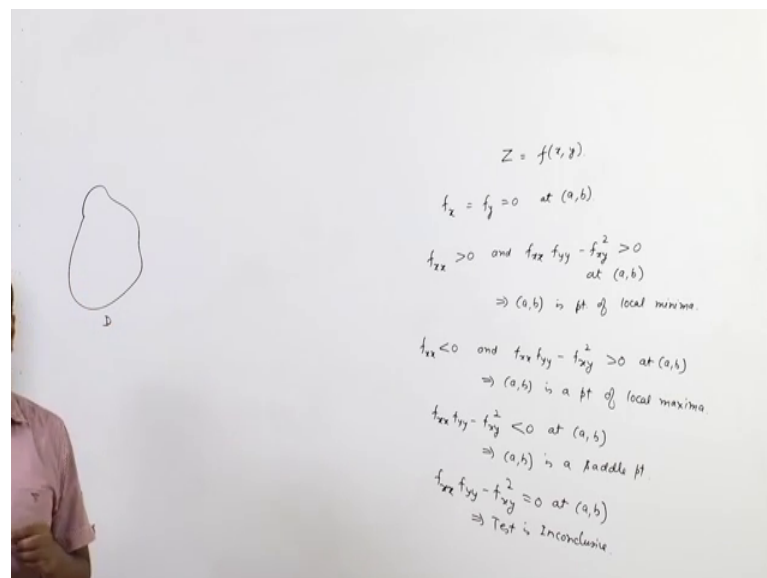 D
Z = f(x, y).
f_x = f_y = 0 at (a,b).
f_xx > 0 and f_xx f_yy - f_xy^2 > 0
at (a,b)
⇒ (a,b) is pt. of local minima.
f_xx < 0 and f_xx f_yy - f_xy^2 > 0 at (a,b)
⇒ (a,b) is a pt of local maxima.
f_xx f_yy - f_xy^2 < 0 at (a,b)
⇒ (a,b) is a saddle pt.
f_xx f_yy - f_xy^2 = 0 at (a,b)
⇒ Test is Inconclusive.